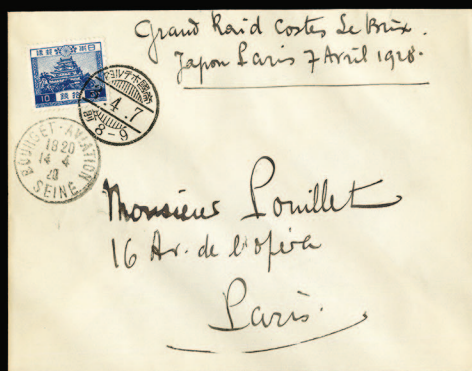 Grand Raid Costes Le Brix.
Japon Paris 7 Avril 1928.
日本郵便
10 錢
4.7
前8-9
BOURGET-AVIATION
1820
14 4
SEINE
Monsieur Pouillet
16 Av. de l'opéra
Paris.